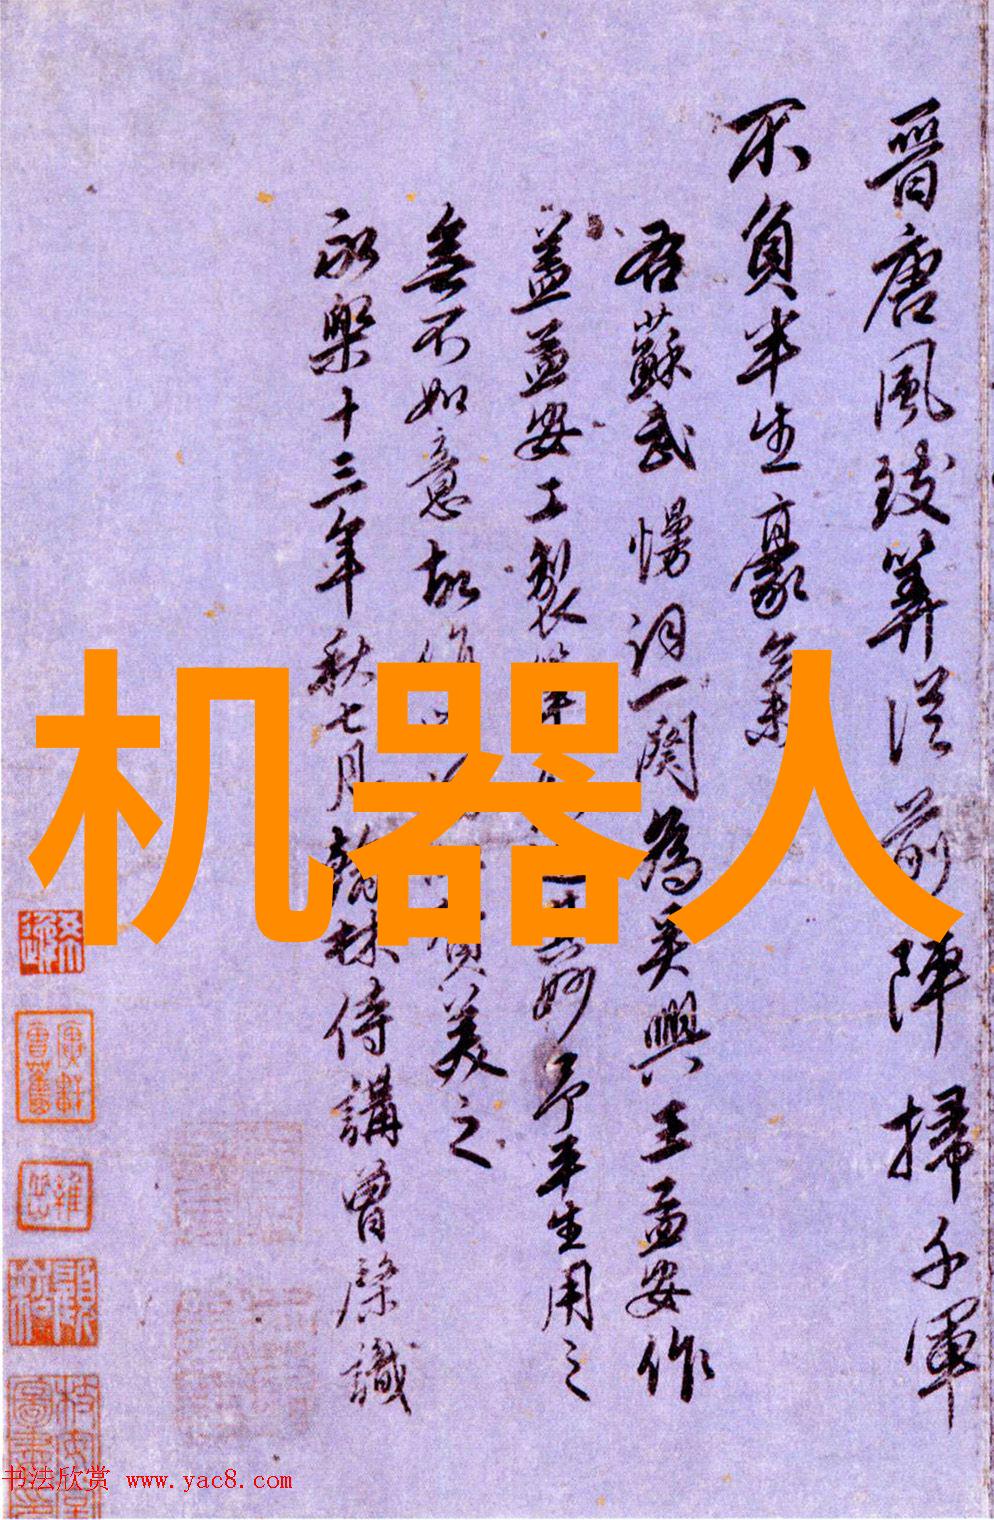 晉唐風致筭從前陣掃千軍
不負半生豪氣
右蘇武慢詞一闋為吴興王孟安作
蓋孟安工製 妙予平生用之
無不如意故 美之
永樂十三年秋七月翰林侍講曾棨識
机器人
书法欣赏 www.yac8.com